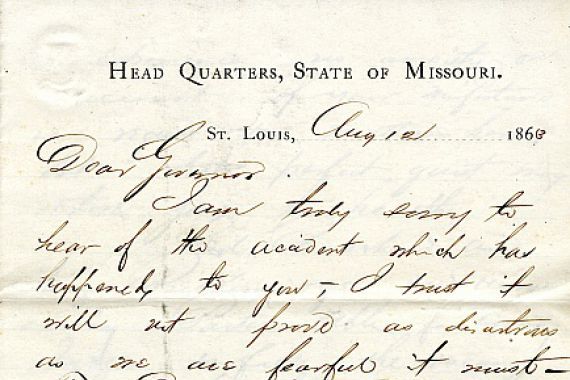 HEAD QUARTERS, STATE OF MISSOURI.
ST. LOUIS, Aug 12 1863
Dear Governor.
I am truly sorry to
hear of the accident which has
happened, to you – I trust it
will not prove as disastrous
as we are fearful it must –